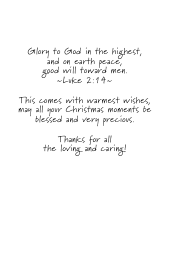 Glory to God in the highest,
and on earth peace,
good will toward men.
~Luke 2:14~
This comes with warmest wishes,
may all your Christmas moments be
blessed and very precious.
Thanks for all
the loving and caring!